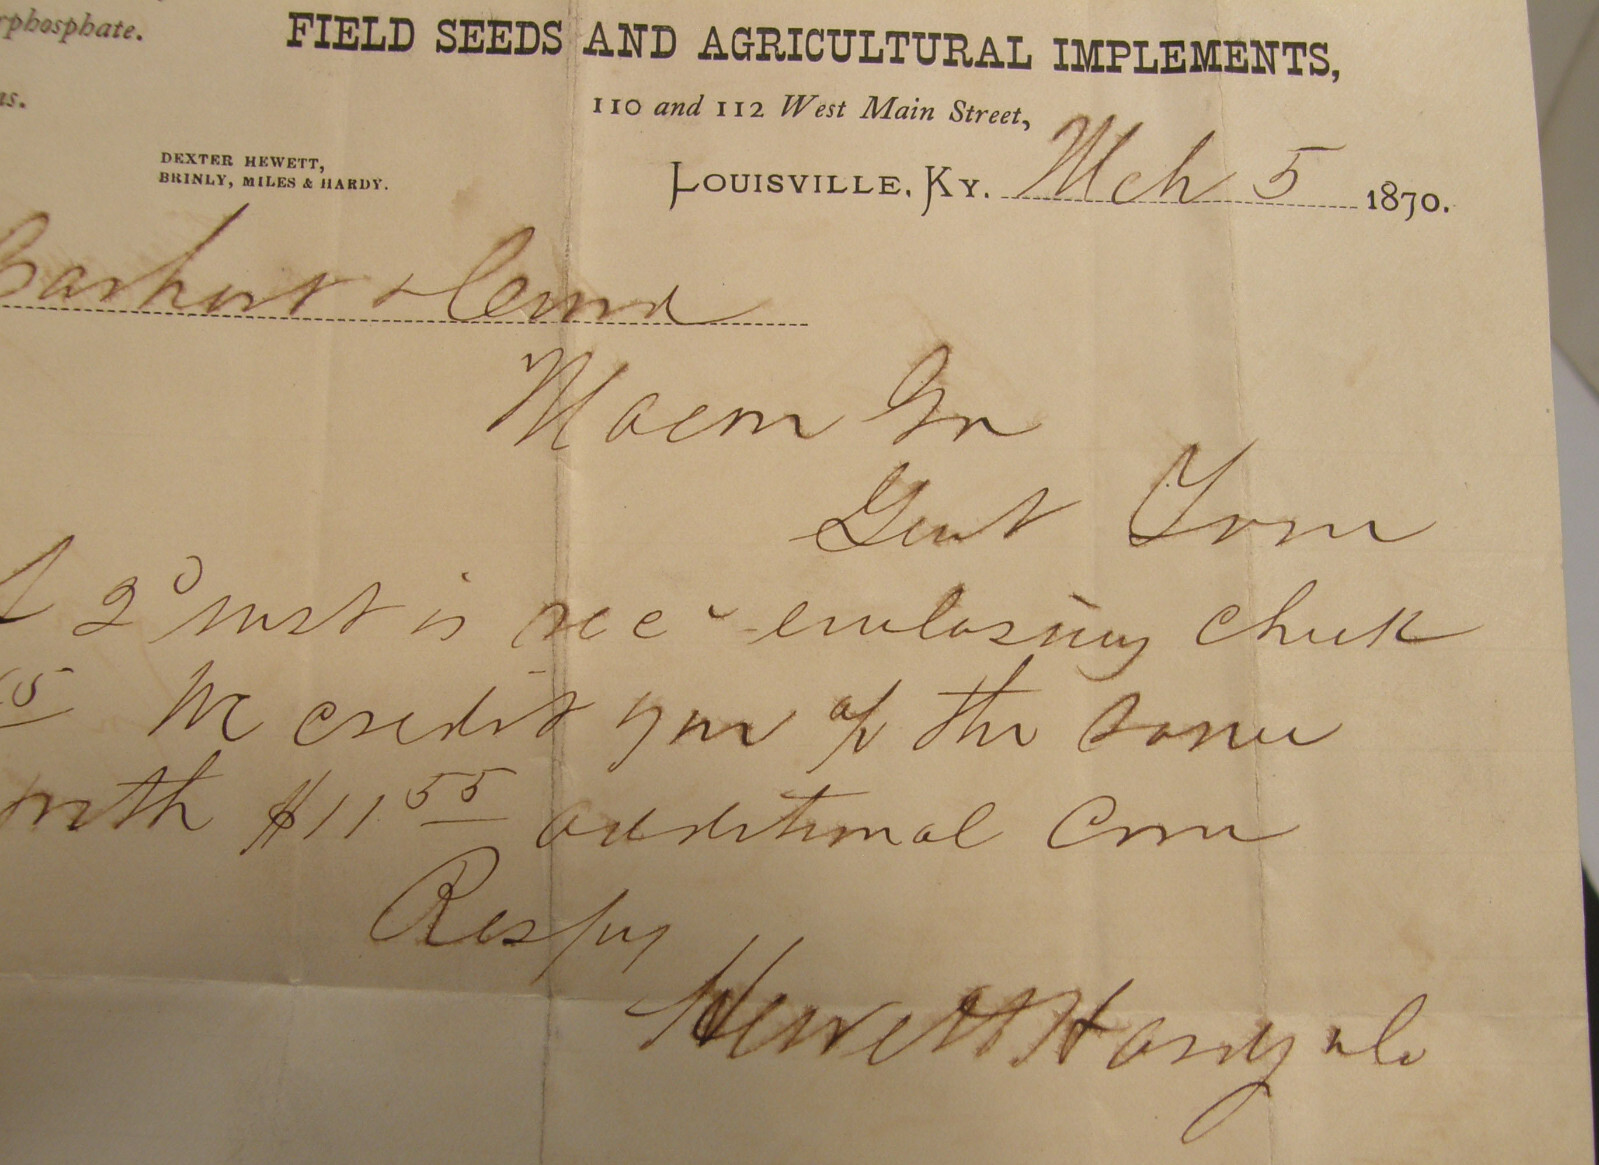 rphosphate.
FIELD SEEDS AND AGRICULTURAL IMPLEMENTS,
ns.
110 and 112 West Main Street,
DEXTER HEWETT,
BRINLY, MILES & HARDY.
LOUISVILLE, KY. Mch 5 1870.
Carhart & Curd
Macon Ga
Gent Your
2d inst is recd enclosing check
We credit your a/c the same
with $11 55 additional Com
Respy
Hewett Hardy & Co